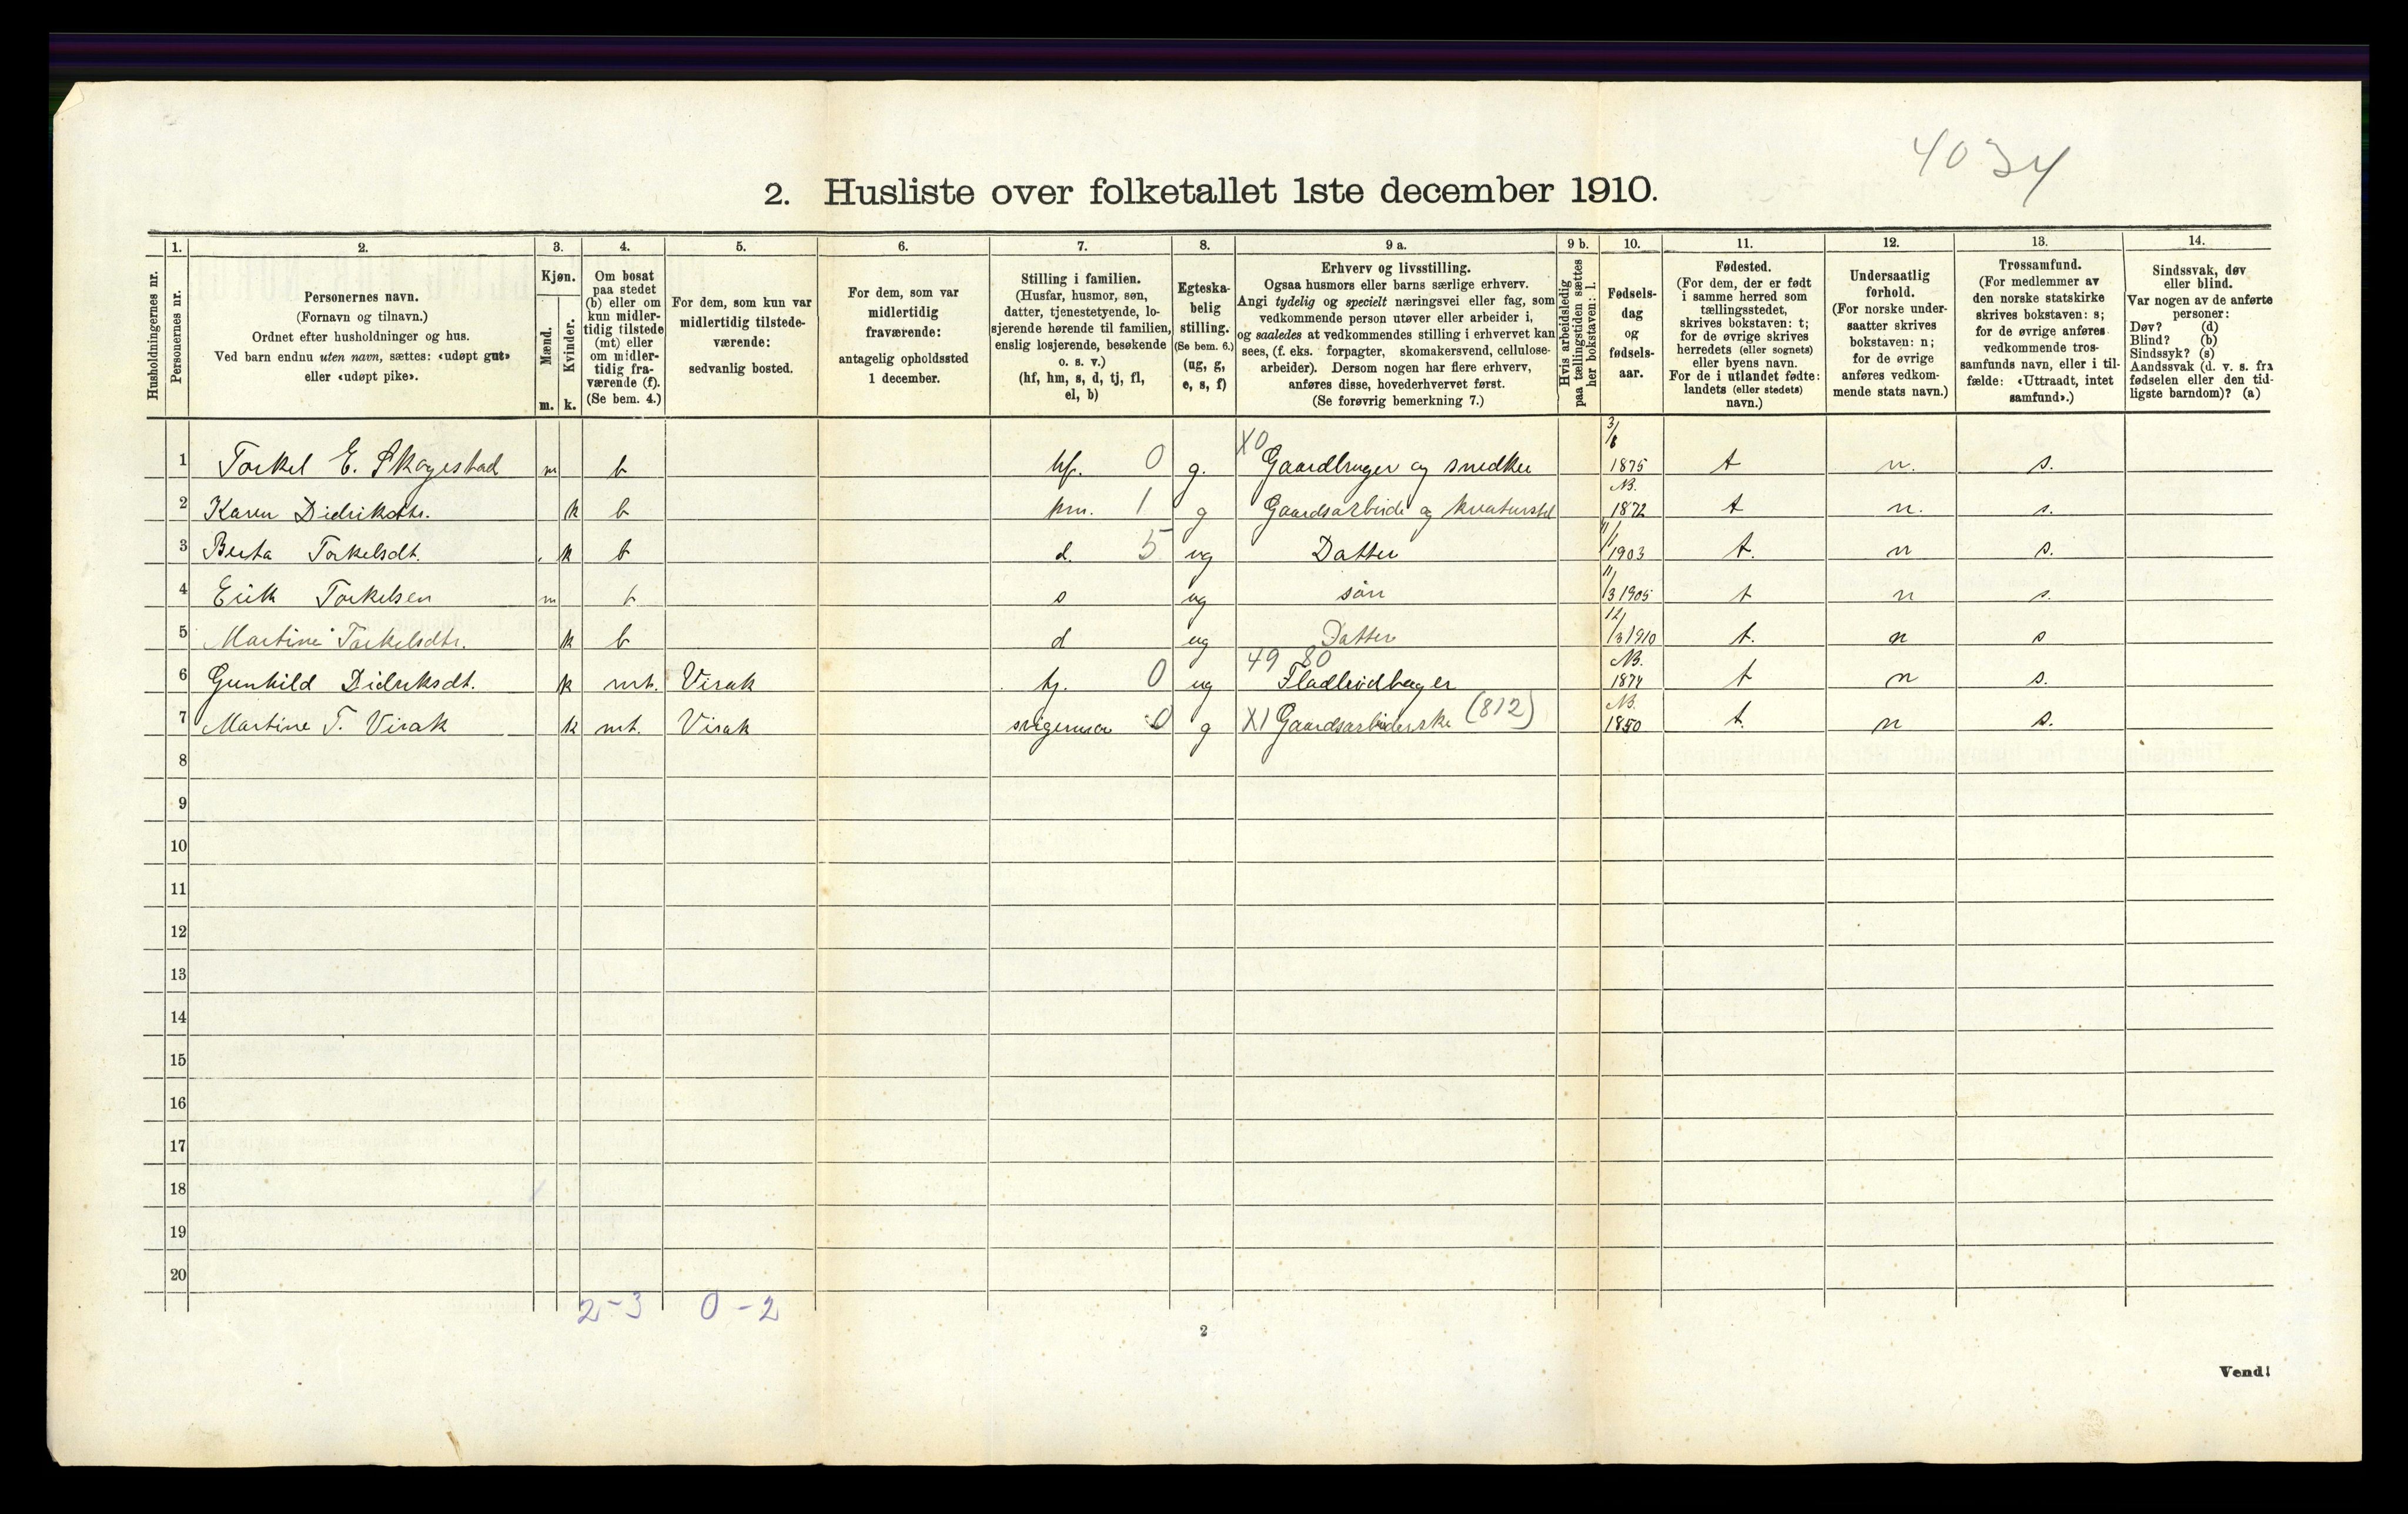 4034
2. Husliste over folketallet 1ste december 1910.
Husholdningernes nr.
1. Personernes nr.
2. Personernes navn.
(Fornavn og tilnavn.)
Ordnet efter husholdninger og hus.
Ved barn endnu uten navn, sættes: «udøpt gut»
eller «udøpt pike».
3. Kjøn.
Mænd. m.
Kvinder. k.
4. Om bosat
paa stedet
(b) eller om
kun midler-
tidig tilstede
(mt) eller
om midler-
tidig fra-
værende (f).
(Se bem. 4.)
5. For dem, som kun var
midlertidig tilstede-
værende:
sedvanlig bosted.
6. For dem, som var
midlertidig
fraværende:
antagelig opholdssted
1 december.
7. Stilling i familien.
(Husfar, husmor, søn,
datter, tjenestetyende, lo-
sjerende hørende til familien,
enslig losjerende, besøkende
o. s. v.)
(hf, hm, s, d, tj, fl,
el, b)
8. Egteska-
belig
stilling.
(Se bem. 6.)
(ug, g,
e, s, f)
9 a. Erhverv og livsstilling.
Ogsaa husmors eller barns særlige erhverv.
Angi tydelig og specielt næringsvei eller fag, som
vedkommende person utøver eller arbeider i,
og saaledes at vedkommendes stilling i erhvervet kan
sees, (f. eks. forpagter, skomakersvend, cellulose-
arbeider). Dersom nogen har flere erhverv,
anføres disse, hovederhvervet først.
(Se forøvrig bemerkning 7.)
9 b. Hvis arbeidsledig
paa tællingstiden sættes
her bokstaven: l.
10. Fødsels-
dag
og
fødsels-
aar.
11. Fødested.
(For dem, der er født
i samme herred som
tællingsstedet,
skrives bokstaven: t;
for de øvrige skrives
herredets (eller sognets)
eller byens navn.
For de i utlandet fødte:
landets (eller stedets)
navn.)
12. Undersaatlig
forhold.
(For norske under-
saatter skrives
bokstaven: n;
for de øvrige
anføres vedkom-
mende stats navn.)
13. Trossamfund.
(For medlemmer av
den norske statskirke
skrives bokstaven: s;
for de øvrige anføres
vedkommende tros-
samfunds navn, eller i til-
fælde: «Uttraadt, intet
samfund».)
14. Sindssvak, døv
eller blind.
Var nogen av de anførte
personer:
Døv? (d)
Blind? (b)
Sindssyk? (s)
Aandssvak (d. v. s. fra
fødselen eller den tid-
ligste barndom)? (a)
1 Torkel E. Skogestad m b hf. 0 g. X0 Gaardbruger og snedker 3/8 1875 t n. s.
2 Karen Didriksdtr. k b hm. 1 g Gaardsarbeide og kreaturstel NB. 1872 t n. s.
3 Berta Torkelsdt. k b d. 5 ug Datter 11/1 1903 t. n s.
4 Erik Torkelsen m b s ug søn 11/3 1905 t n s.
5 Martine Torkelsdtr. k b d ug Datter 12/3 1910 t. n s
6 Gunhild Didriksdt. k mt. Virak tj. 0 ug 49 80 Fladbrødbager NB. 1874 t n s.
7 Martine T. Virak k mt. Virak svigermor 0 g X1 Gaardsarbeiderske (812) NB. 1850 t. n s.
8
9
10
11
12
13
14
15
16
17
18
19
20
2-3 0-2
2
Vend!